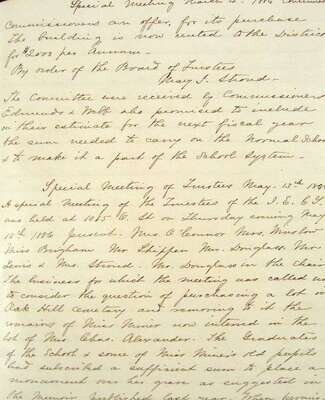 Special Meeting March 1886
Commissioners an offer, for its purchase
The building is now rented to the District
for $2000 per Annum—
By order of the Board of Trustees
May J. Stroud.—
The Committee were received by Commissioners
Edmunds & who promised to include
in their estimate for the next fiscal year
the sum needed to carry on the Normal School
& to make it a part of the School System.—
Special Meeting of Trustees May. 13th
A special Meeting of the Trustees of the I. E. C. Y.
was held at E. St on Thursday evening May
13th 1886 present. Mrs. O'Connor Mrs. Winslow
Miss Brigham Mr Shippen Mr. Douglass. Mr
Lewis & Mrs. Stroud. Mr. Douglass in the chair
The business for which the meeting was called was
to consider the question of purchasing a lot in
Oak Hill cemetary and removing to it the
remains of Miss Miner now interred in the
lot of Mrs. Chas. Alexander. The Graduates
of the School & some of Miss Miner's old pupils
had subscribed a sufficient sum to place a
monument over her grave as suggested in
the Memoir published last year.